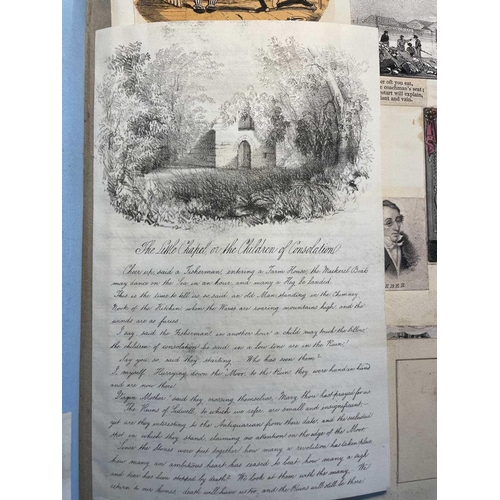 The Little Chapel, or the Children of Consolation
Cheer up, said a Fisherman, entering a Farm House, the Mackerel Boats
may dance on the Sea in an hour, and many a Hog be landed.
This is the time to tell us so said an old Man, standing in the Chimney
Nook of the Kitchen when the Waves are roaring mountains high, and the
winds are as furies
I say, said the Fisherman, in another hour a child may truck the billow,
the children of consolation he said, in a low tone are in the Ruin,
Say you so, said they, starting. Who has seen them?
I, myself. Hurrying down the Moor, to the Ruin, they were hand in hand
and are now there.
Virgin Mother, said they crossing themselves, Mary, thou hast prayed for us
The Ruins of Lidwell, to which we refer are small and insignificant,
yet are they interesting to the Antiquarian from their date, and the secluded
spot in which they stand, claiming no attention on the edge of the Moor.
Since the Stones were put together how many a revolution has taken place
how many an ambitious heart has ceased to beat, how many a sigh
and tear has been stopped by death? We look at them with the many. We
return to our homes, death will have us too, and the Ruins will still be there.
er oft you see,
coachman's seat;
start will explain,
ient and vain.
EBER